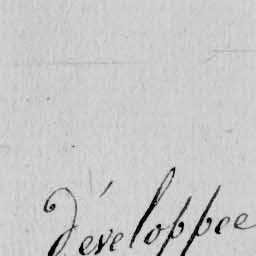 développee